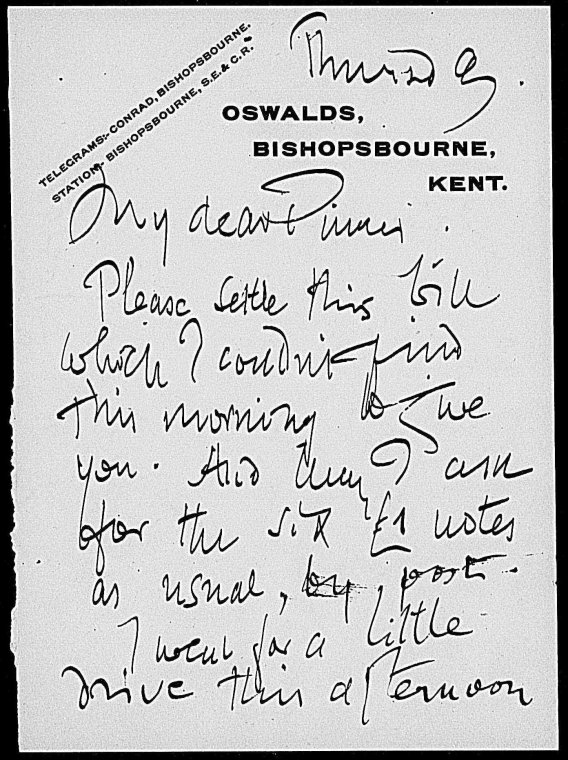 TELEGRAMS:- CONRAD, BISHOPSBOURNE.
STATION:- BISHOPSBOURNE, S.E. & C.R.
Thursday.
OSWALDS,
BISHOPSBOURNE,
KENT.
My dear Pinker.
Please settle this bill
which I couldn't find
this morning to give
you. And may I ask
for the six £1 notes
as usual, by post.
I went for a little
drive this afternoon